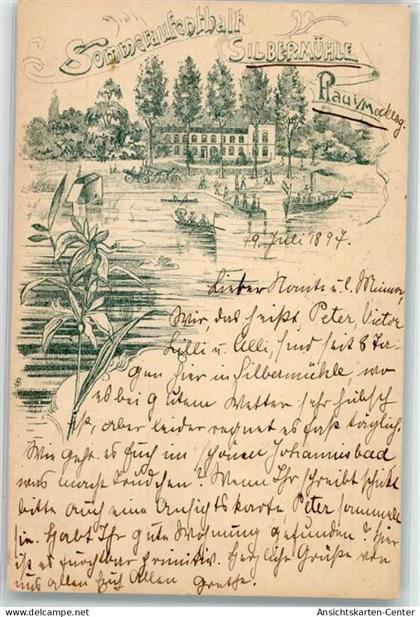 Sommeraufenthalt
SILBERMÜHLE
Plau i/Mecklbg.
19. Juli 1897.
Lieber u. l.
Wir, das heißt Peter, Victor
Lilli u. Elli, sind seit 8 Ta-
gen hier in Silbermühle wo
es bei gutem Wetter sehr hübsch
ist, aber leider regnet es fast täglich.
Wie geht es Euch im schönen Johannisbad
was macht Trudchen? Wenn Ihr schreibt schickt
bitte auch eine Ansichtskarte, Peter sammelt
sie. Habt Ihr gute Wohnung gefunden? Hier
ist es furchtbar primitiv. Herzliche Grüße von
uns allen Euch Allen Grethe.
Ansichtskarten-Center